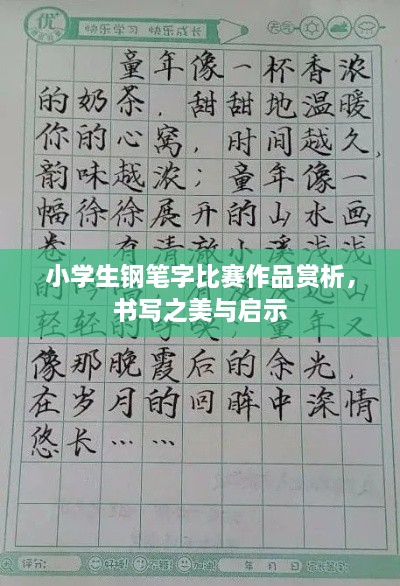 优
快乐学习 快乐成长
天气
童年像一杯香浓
的奶茶,甜甜地温暖
你的心窝,时间越久,
韵味越浓;童年像一
幅徐徐展开的山水画
卷,有清澈小溪浅浅
小学生钢笔字比赛作品赏析,
书写之美与启示
年又
像那晚霞后的余光,
在岁月的回眸中深情
悠长……
评分: 好棒! 不错! 加油! 年 月 日 家长签字: